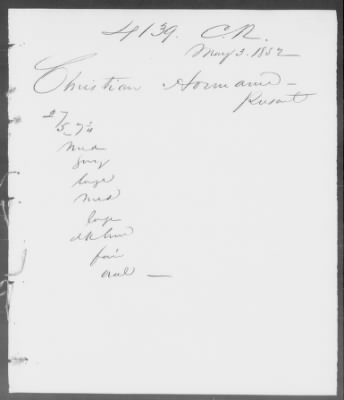 4139. C.R.
May 3. 1852
Christian Hormann –
27
5_7½
med
gray
large
med
large
dk brw
fair
oval —